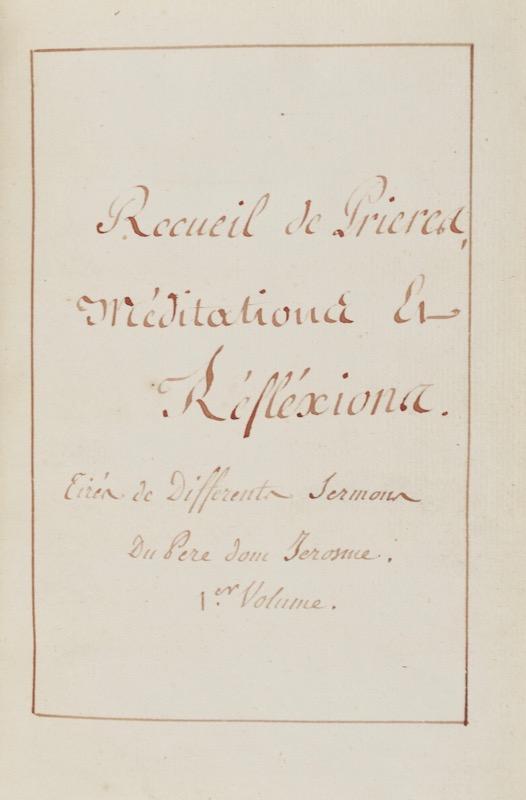 Recueil de Prieres,
Méditations Et
Réfléxions.
Tirés de Differents Sermons
Du Pere dom Jerosme.
1.er Volume.